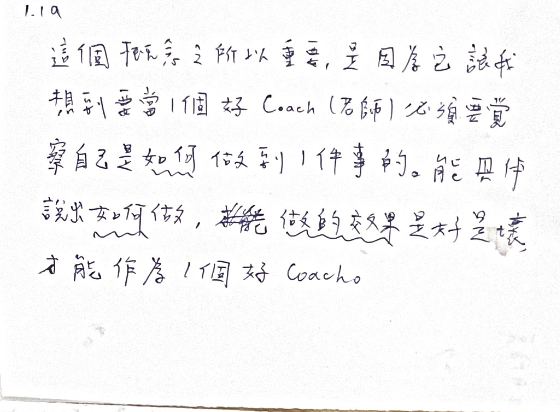 1.19
這個概念之所以重要,是因為它讓我
想到要當1個好Coach(老師)必須要覺
察自己是如何做到1件事的。能具体
說出如何做,做的效果是好是壞
才能作為1個好Coach。